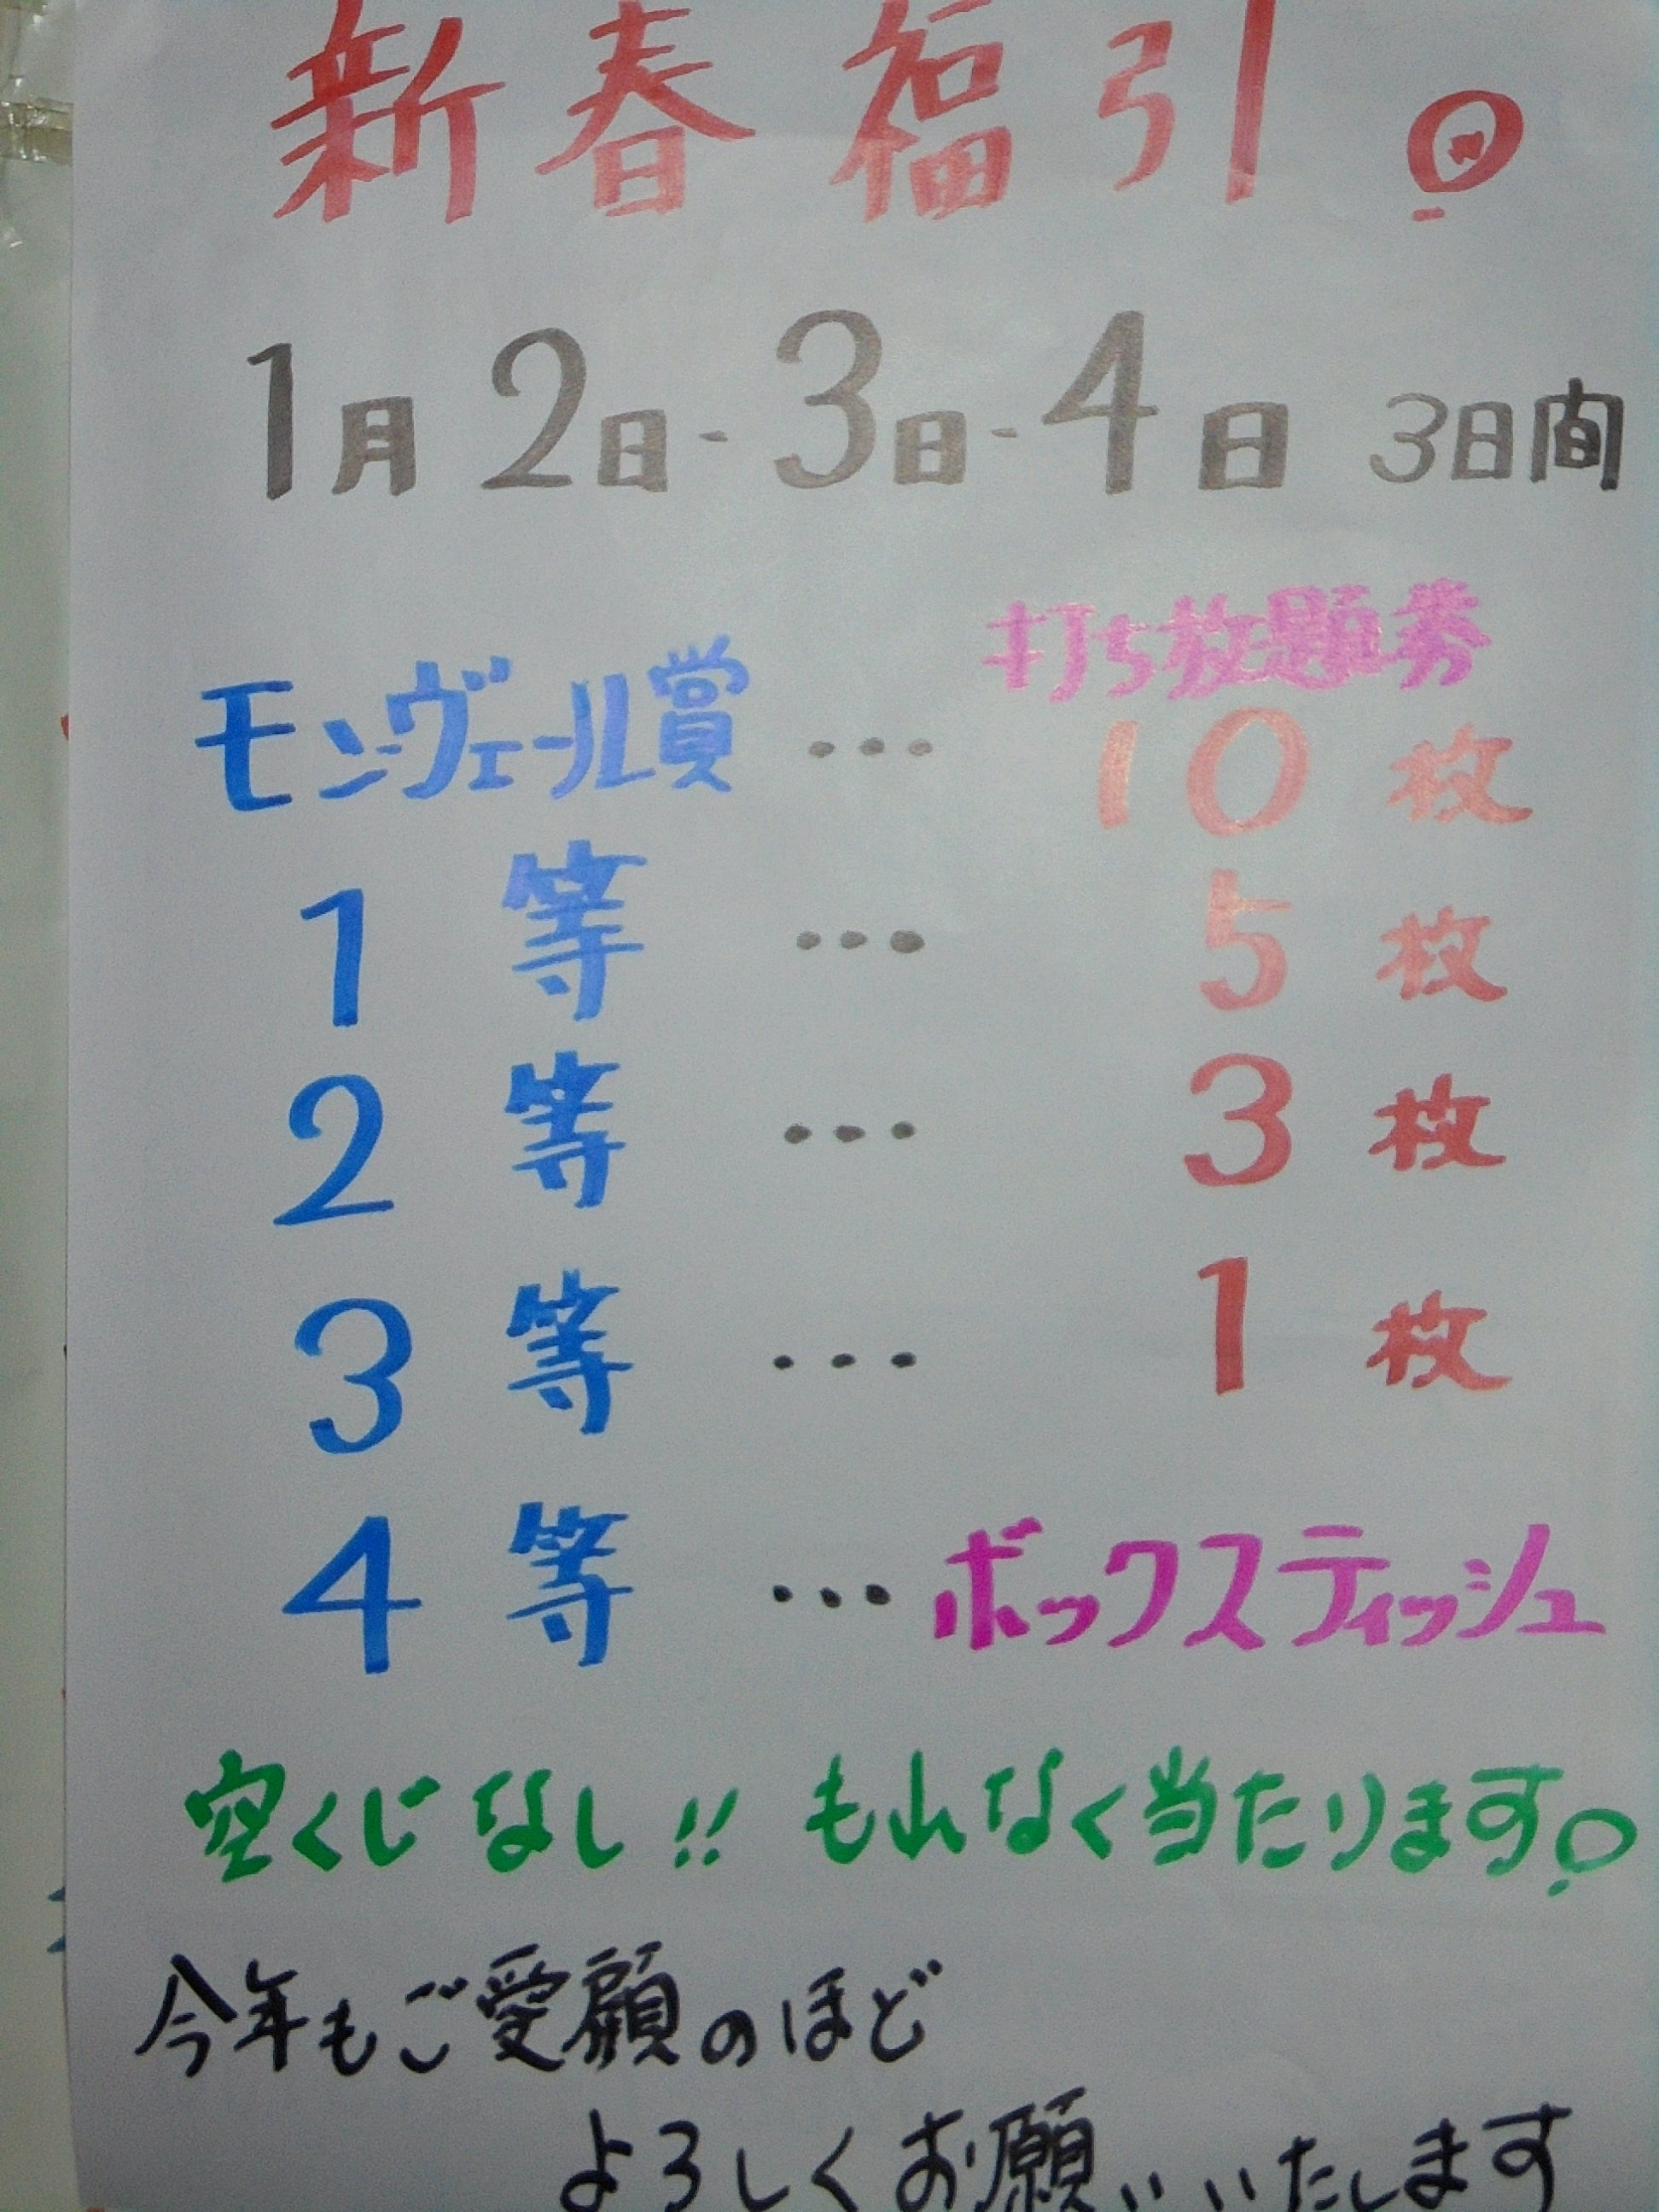 新春福引
1月2日-3日-4日 3日間
打ち放題券
モンヴェール賞 … 10枚
1等 … 5枚
2等 … 3枚
3等 … 1枚
4等 … ボックスティッシュ
空くじなし!! もれなく当たります。
今年もご愛顧のほど
よろしくお願いいたします